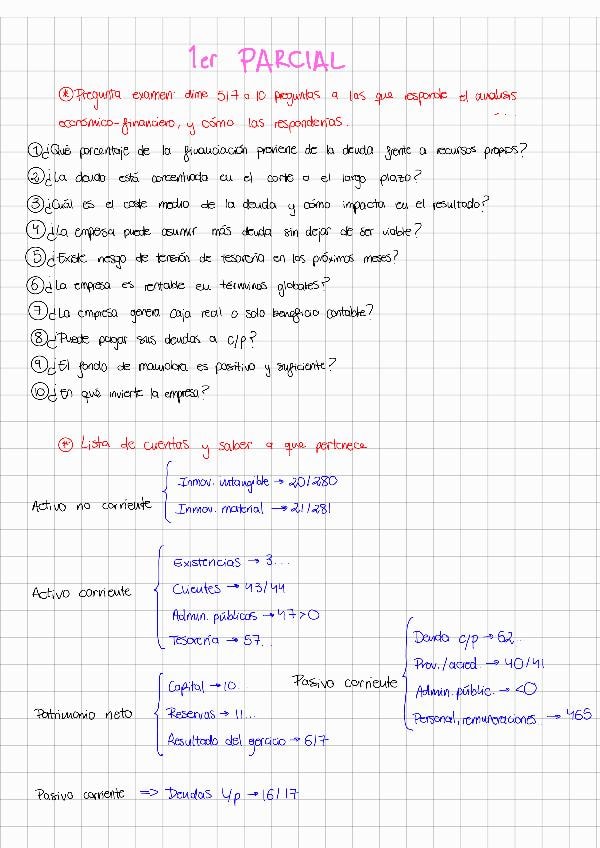 1er PARCIAL
* Pregunta examen: dime 5/7 o 10 preguntas a las que responde el análisis
económico-financiero, y cómo las responderías.
1 ¿Qué porcentaje de la financiación proviene de la deuda frente a recursos propios?
2 ¿La deuda está concentrada en el corto o el largo plazo?
3 ¿Cuál es el coste medio de la deuda y cómo impacta en el resultado?
4 ¿La empresa puede asumir más deuda sin dejar de ser viable?
5 ¿Existe riesgo de tensión de tesorería en los próximos meses?
6 ¿La empresa es rentable en términos globales?
7 ¿La empresa genera caja real o solo beneficio contable?
8 ¿Puede pagar sus deudas a c/p?
9 ¿El fondo de maniobra es positivo y suficiente?
10 ¿En qué invierte la empresa?
* Lista de cuentas y saber a que pertenece
Activo no corriente
Inmov. intangible → 20/280
Inmov. material → 21/281
Activo corriente
Existencias → 3...
Clientes → 43/44
Admin. públicas → 47>0
Tesorería → 57...
Patrimonio neto
Capital → 10...
Reservas → 11...
Resultado del ejercicio → 6/7
Pasivo corriente
Deuda c/p → 52...
Prov./acred. → 40/41
Admin. públic. → <0
Personal, remuneraciones → 465
Pasivo corriente => Deudas L/p → 16/17